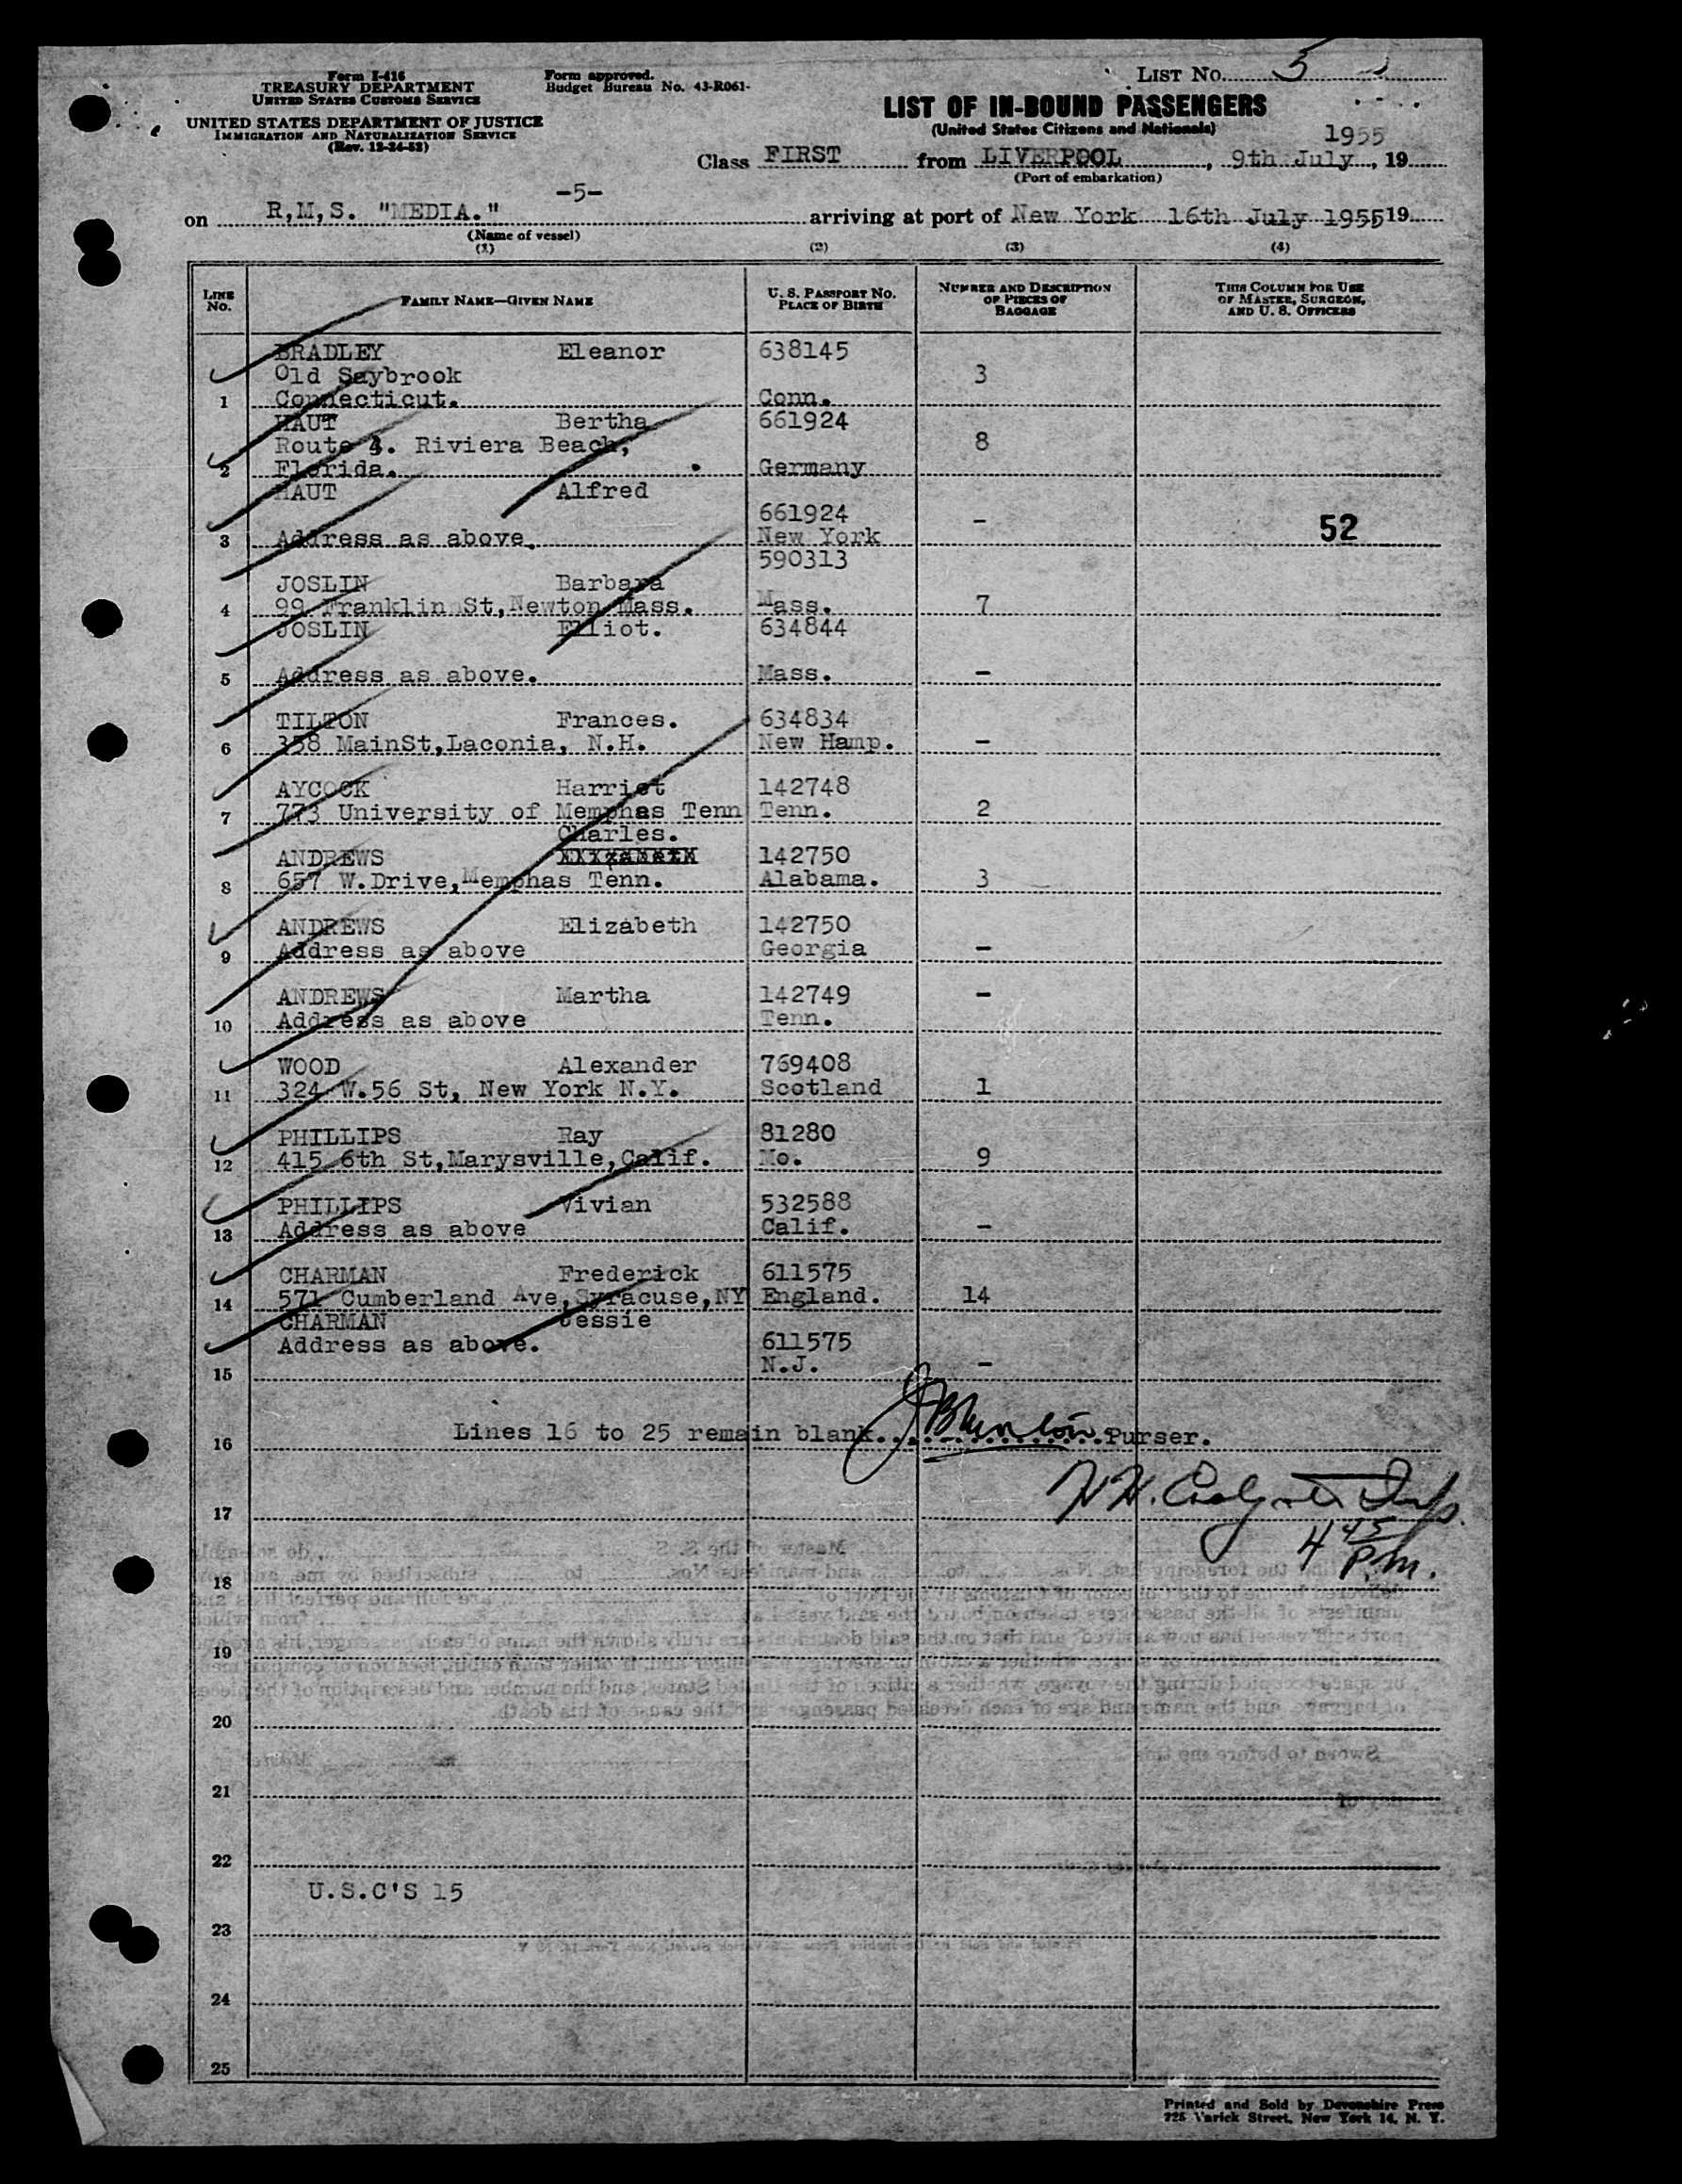 Form I-416
TREASURY DEPARTMENT
UNITED STATES CUSTOMS SERVICE
UNITED STATES DEPARTMENT OF JUSTICE
IMMIGRATION AND NATURALIZATION SERVICE
(Rev. 12-24-52)
Form approved.
Budget Bureau No. 43-R061-
LIST No. 5
LIST OF IN-BOUND PASSENGERS
(United States Citizens and Nationals)
1955
Class FIRST from LIVERPOOL, 9th July, 19
(Port of embarkation)
-5-
on R,M,S. "MEDIA." arriving at port of New York 16th July 1955 19
(Name of vessel)
(1) (2) (3) (4)
LINE No. FAMILY NAME—GIVEN NAME U. S. PASSPORT NO. PLACE OF BIRTH NUMBER AND DESCRIPTION OF PIECES OF BAGGAGE THIS COLUMN FOR USE OF MASTER, SURGEON, AND U. S. OFFICERS
BRADLEY Eleanor 638145
Old Saybrook 3
1 Connecticut. Conn.
HAUT Bertha 661924
Route 4. Riviera Beach, 8
2 Florida. Germany
HAUT Alfred
661924 - 52
3 Address as above. New York
590313
JOSLIN Barbara
4 99 Franklin St, Newton Mass. Mass. 7
JOSLIN Elliot. 634844
5 Address as above. Mass. -
TILTON Frances. 634834
6 358 MainSt,Laconia, N.H. New Hamp. -
AYCOCK Harriet 142748
7 773 University of Memphas Tenn Tenn. 2
Charles.
ANDREWS 142750
8 657 W.Drive,Memphas Tenn. Alabama. 3
ANDREWS Elizabeth 142750
9 Address as above Georgia -
ANDREWS Martha 142749 -
10 Address as above Tenn.
WOOD Alexander 769408
11 324 W.56 St, New York N.Y. Scotland 1
PHILLIPS Ray 81280
12 415 6th St,Marysville,Calif. Mo. 9
PHILLIPS Vivian 532588
13 Address as above Calif. -
CHARMAN Frederick 611575
14 571 Cumberland Ave,Syracuse,NY England. 14
CHARMAN Jessie
Address as above. 611575
15 N.J. -
16 Lines 16 to 25 remain blank. Purser.
17
4 45 P.M.
18
19
20
21
22
U.S.C'S 15
23
24
25
Printed and Sold by Devonshire Press
225 Varick Street, New York 14, N. Y.